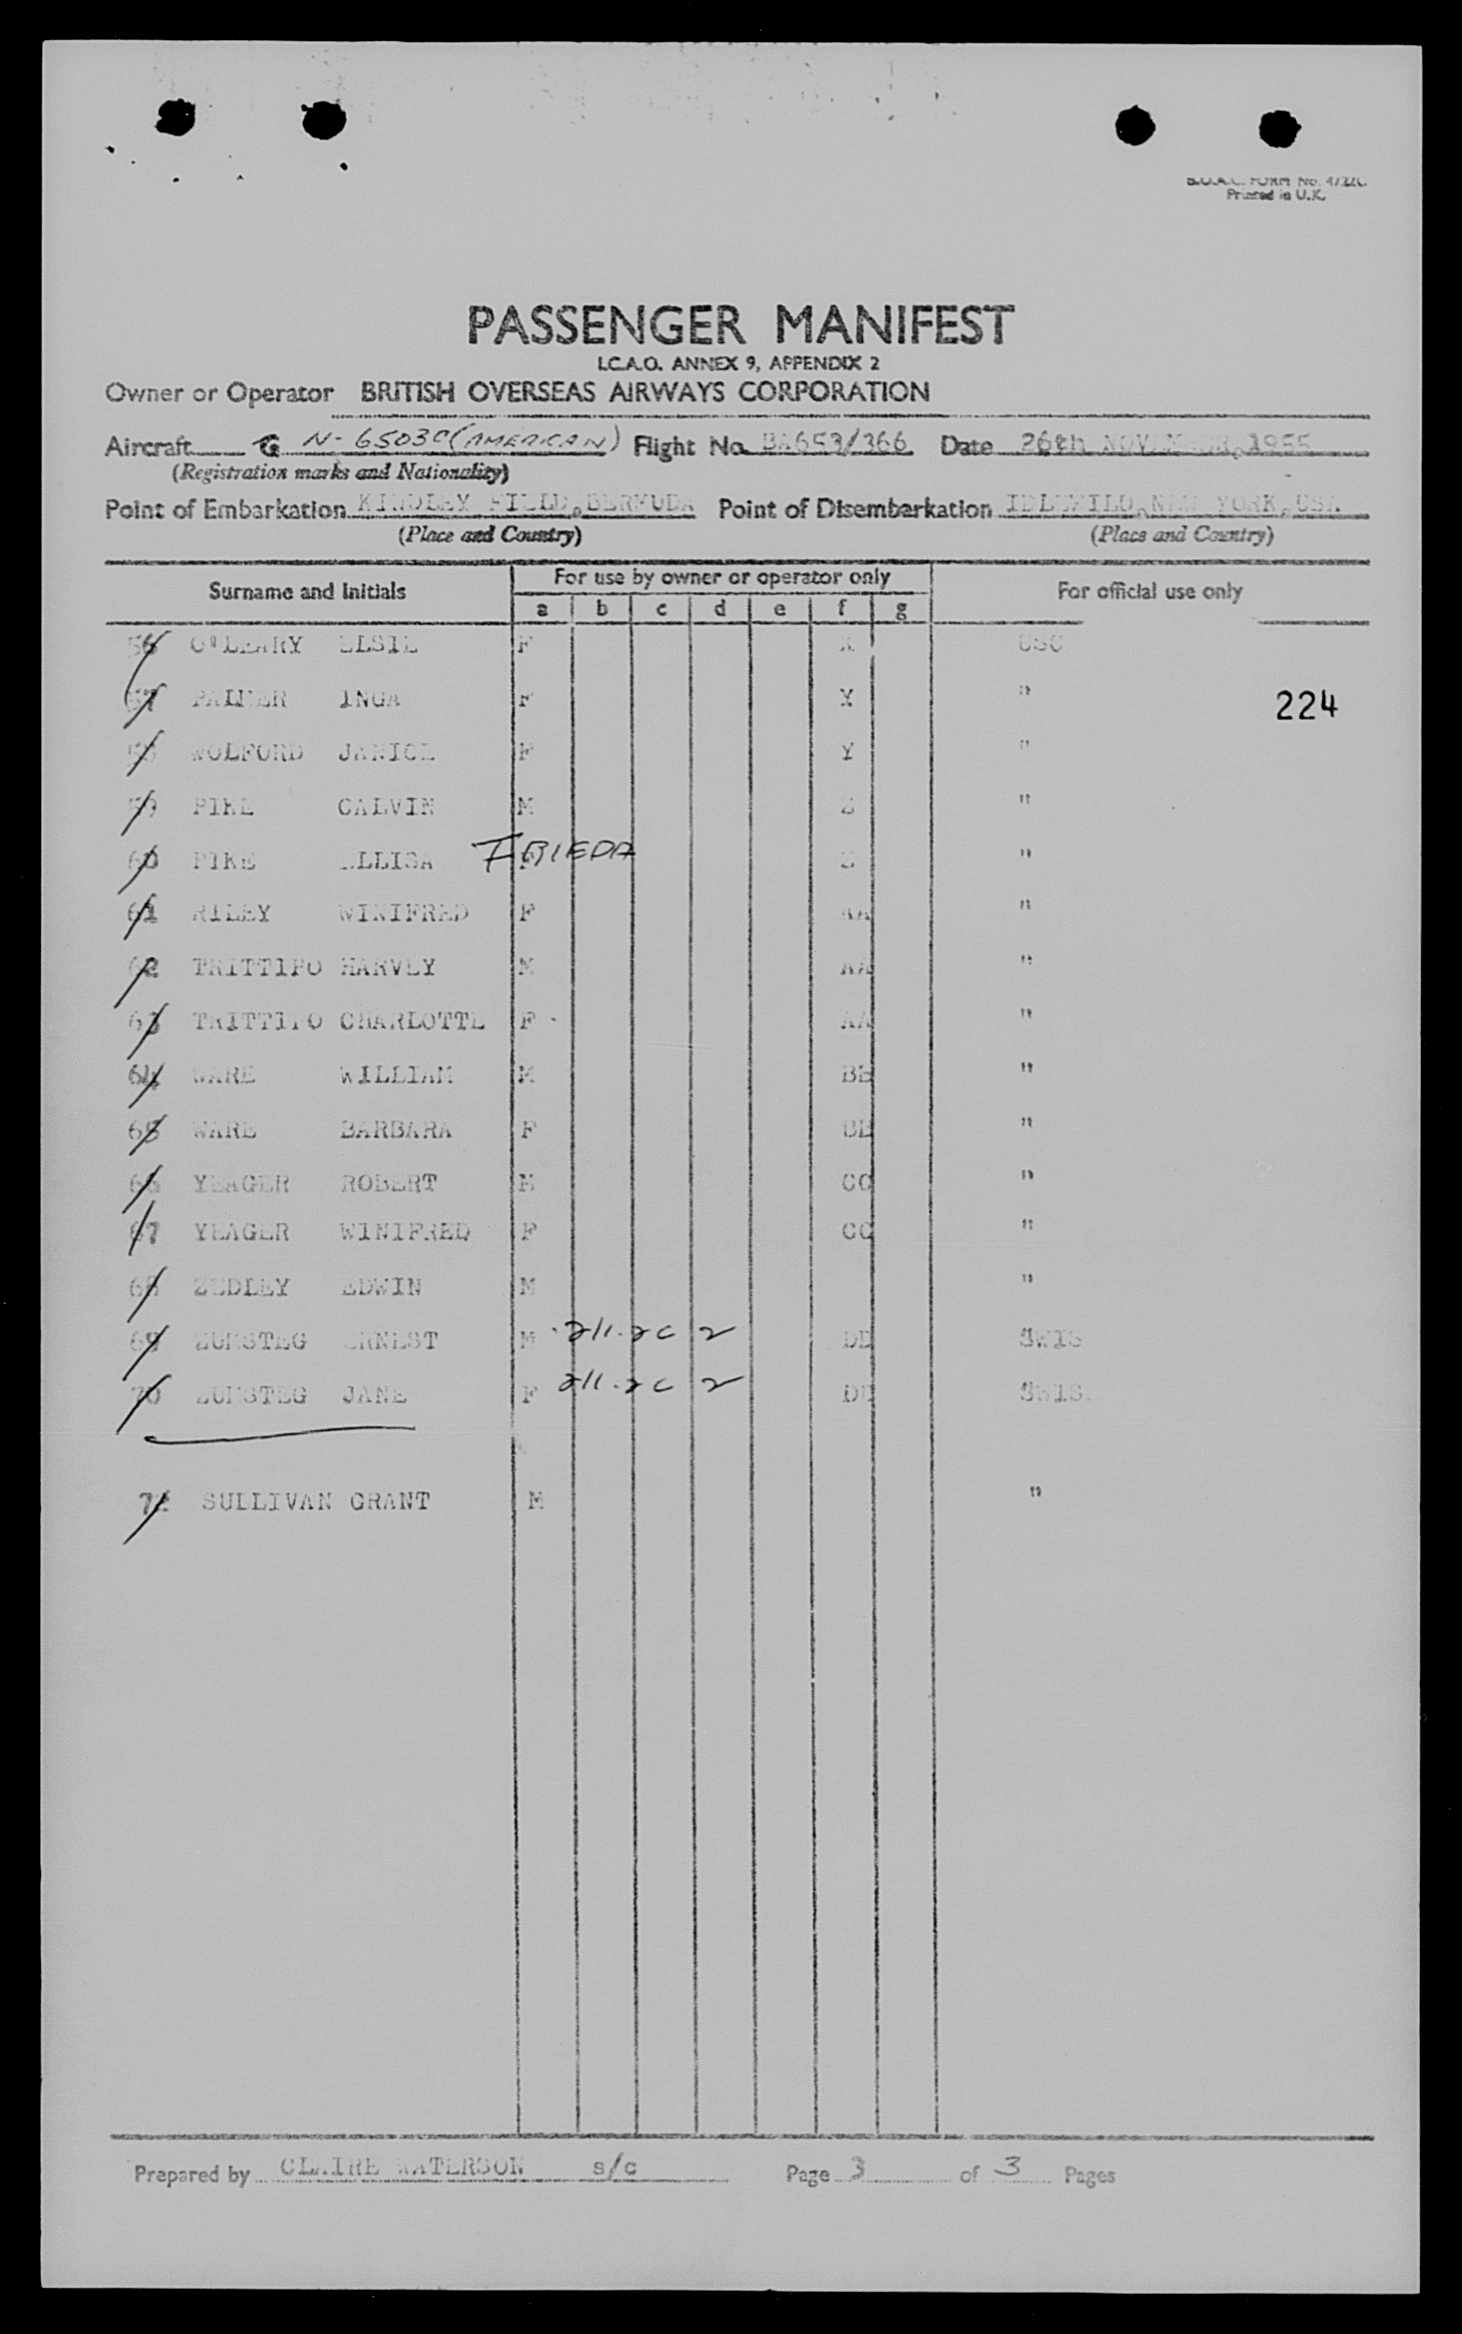 Printed in U.K.
PASSENGER MANIFEST
I.C.A.O. ANNEX 9, APPENDIX 2
Owner or Operator BRITISH OVERSEAS AIRWAYS CORPORATION
Aircraft G N-6503C (AMERICAN) Flight No. BA653/366 Date 26th NOVEMBER, 1955
(Registration marks and Nationality)
Point of Embarkation KINDLEY FIELD, BERMUDA Point of Disembarkation IDLEWILD, NEW YORK, USA
(Place and Country) (Place and Country)
Surname and Initials For use by owner or operator only For official use only
a b c d e f g
56 O'LEARY ELSIE F X USC
224
57 PALMER INGA F Y "
58 WOLFORD JANICE F Y "
59 PIKE CALVIN M Z "
60 PIKE FRIEDA Z "
61 RILEY WINIFRED F AA "
62 TRITTIPO HARVEY M AA "
63 TRITTIPO CHARLOTTE F AA "
64 WARE WILLIAM M BB "
65 WARE BARBARA F BB "
66 YEAGER ROBERT M CC "
67 YEAGER WINIFRED F CC "
68 ZEDLEY EDWIN M "
69 ZUMSTEG ERNEST M 211.2c 2 DD SWIS
70 ZUMSTEG JANE F 211.2c 2 DD SWIS
SULLIVAN GRANT M "
Prepared by CLAIRE WATERSON s/c Page 3 of 3 Pages